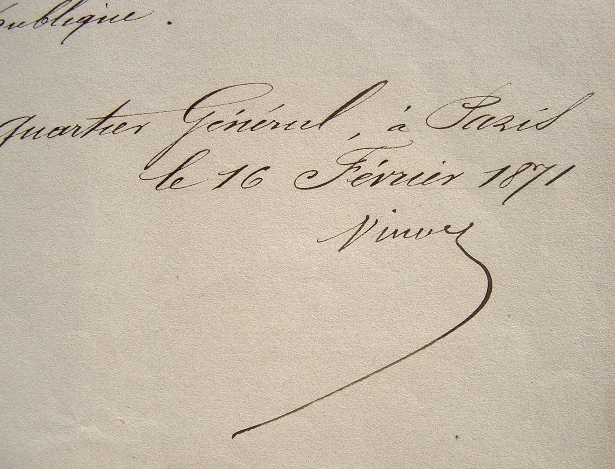 publique.
quartier Général, à Paris
le 16 Février 1871
Vinoy